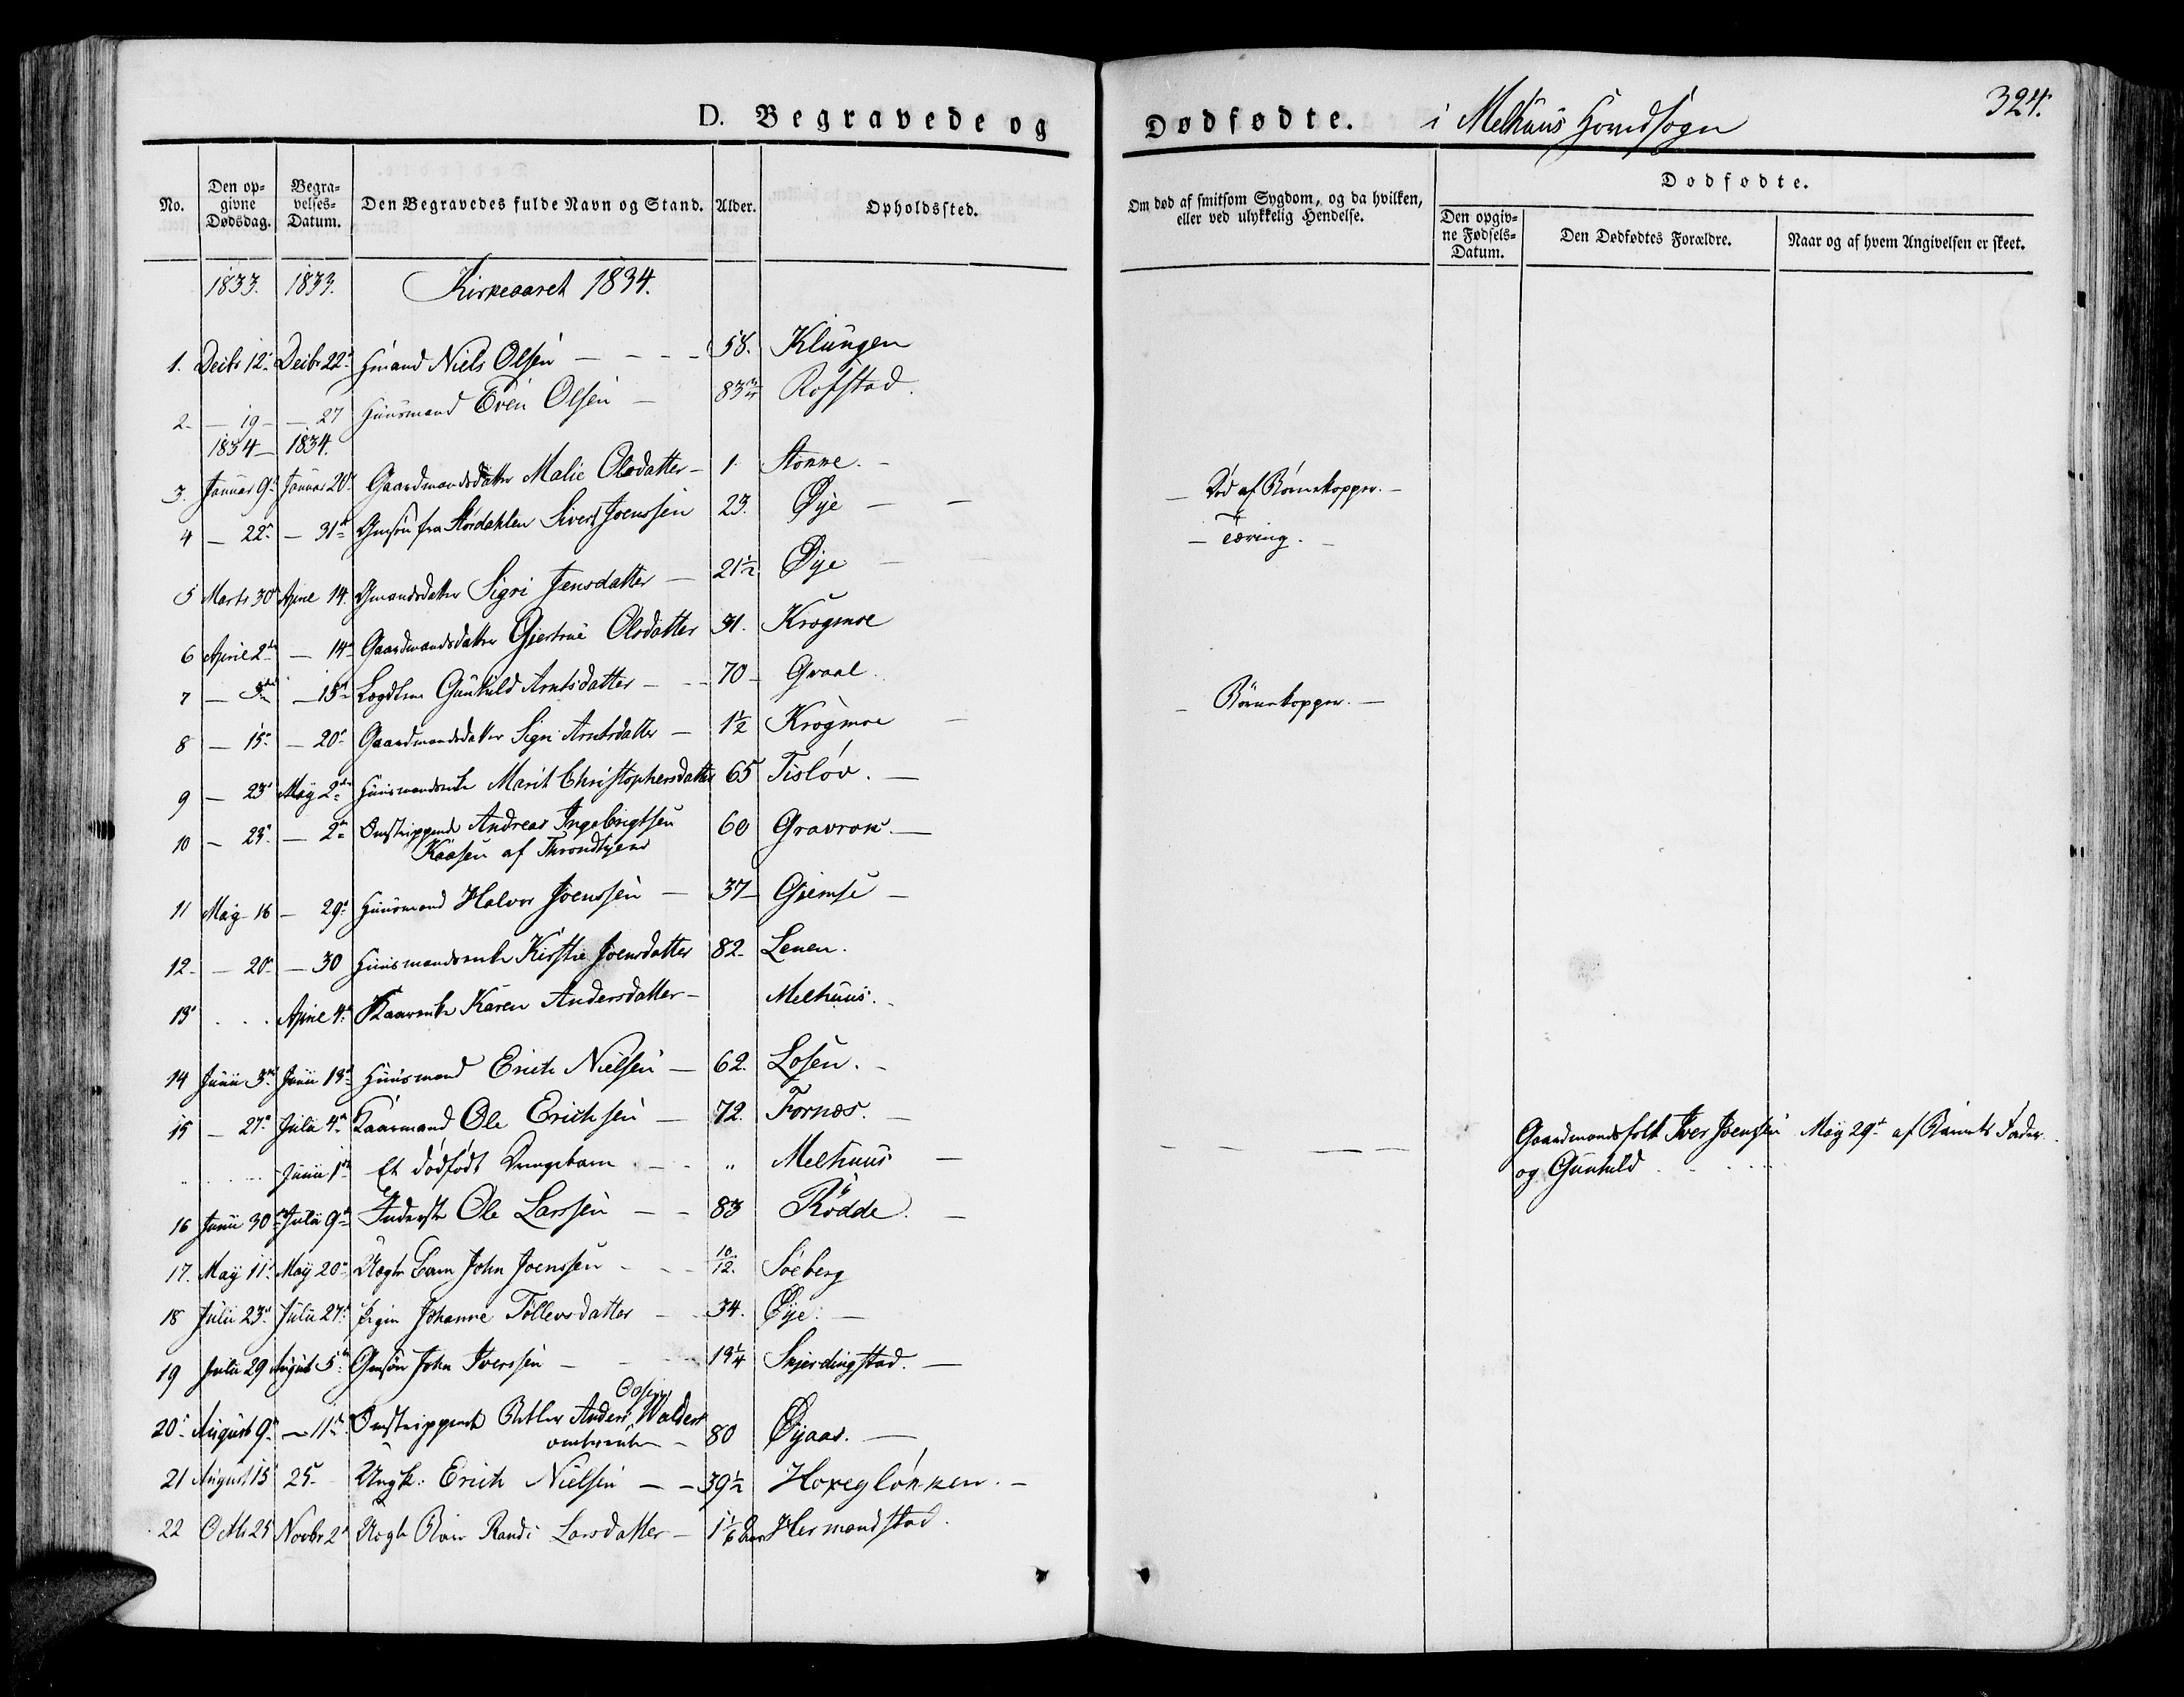 D. Begravede og Dødfødte. i Melhuus Hovedsogn 324.
No. Den opgivne Dødsdag. Begravelses-Datum. Den Begravedes fulde Navn og Stand. Alder. Opholdssted. Om død af smitsom Sygdom, og da hvilken, eller ved ulykkelig Hendelse. Dødfødte.
Den opgivne Fødsels-Datum. Den Dødfødtes Forældre. Naar og af hvem Angivelsen er skeet.
1833. 1833. Kirkeaaret 1834.
1. Decbr 12. Decbr 22. Gmand Niels Olsen 58. Klungen
2. — 19 — 27 Huusmand Even Olsen — 83 3/4 Rofstad.
1834 — 1834.
3. Januar 9. Januar 20. Gaardmandsdatter Malie Olsdatter — 1. Død af Børnekopper. —
4 — 22. — 31. Gmsøn fra Størdahlen Sivert Joenssen 23. Øye — — Tæring. —
5 Marts 30 April 14. Gmandsdatter Sigri Jensdatter — 21 1/2 Øye —
6 April 2 — 14 Gaardmandsdatter Gjertrue Olsdatter 31. Krogmoe
7 — 5 — 15 Lægdlem Gunhild Arntsdatter — 70 — Qvaal.
8 — 15. — 20. Gaardmandsdatter Sigri Arntsdatter — 1 1/2 Krogmoe — Børnekopper. —
9 — 23 May 2 Huusmandsenke Marit Christophersdatter 65 Tisløv. —
10 — 23. — 2 Omstrippende Andreas Ingebrigtsen 60 Gravrok. —
Kaasen af Throndhjem
11 May 16 — 29. Huusmand Halvor Joenssen — 37 — Gjemse —
12. — 20 — 30 Huusmandsenke Kirstie Joensdatter 82. Lenen.
13 . . . April 4. Kaarenke Karen Andersdatter — Melhuus.
14 Junii 3 Junii 13 Huusmand Erich Nielsen — 62. Losen. —
15 — 27. Julii 4. Kaarmand Ole Erichsen — 72. Fornæs. —
Junii 1 Et dødfødt Drengebarn „ Melhuus — Gaardmandsfolk Iver Joenssen og Gunhild May 29 af Barnets Fader.
16 Junii 30 Julii 9 Inderste Ole Larssen — 83 Rødde. —
17. May 11. May 20. Uægte Barn John Joenssen 10/12. Søeberg
18 Julii 23. Julii 27. Pigen Johanne Tollevsdatter — 34. Øye. —
19 Julii 29 August 5. Gmsøn John Iverssen — 19 1/4 Skjerdingstad. —
20. August 9. — 11. Omstrippende Betler Anders Olsen Walders 80 Øyaas. —
21 August 15 25. Ungk: Erich Nielsen — 39 1/2 Hoxegløkken. —
22 Octbr 25 Novbr 2. Uægte Barn Randi Larsdatter — 1 1/6 Aar Hermandstad.